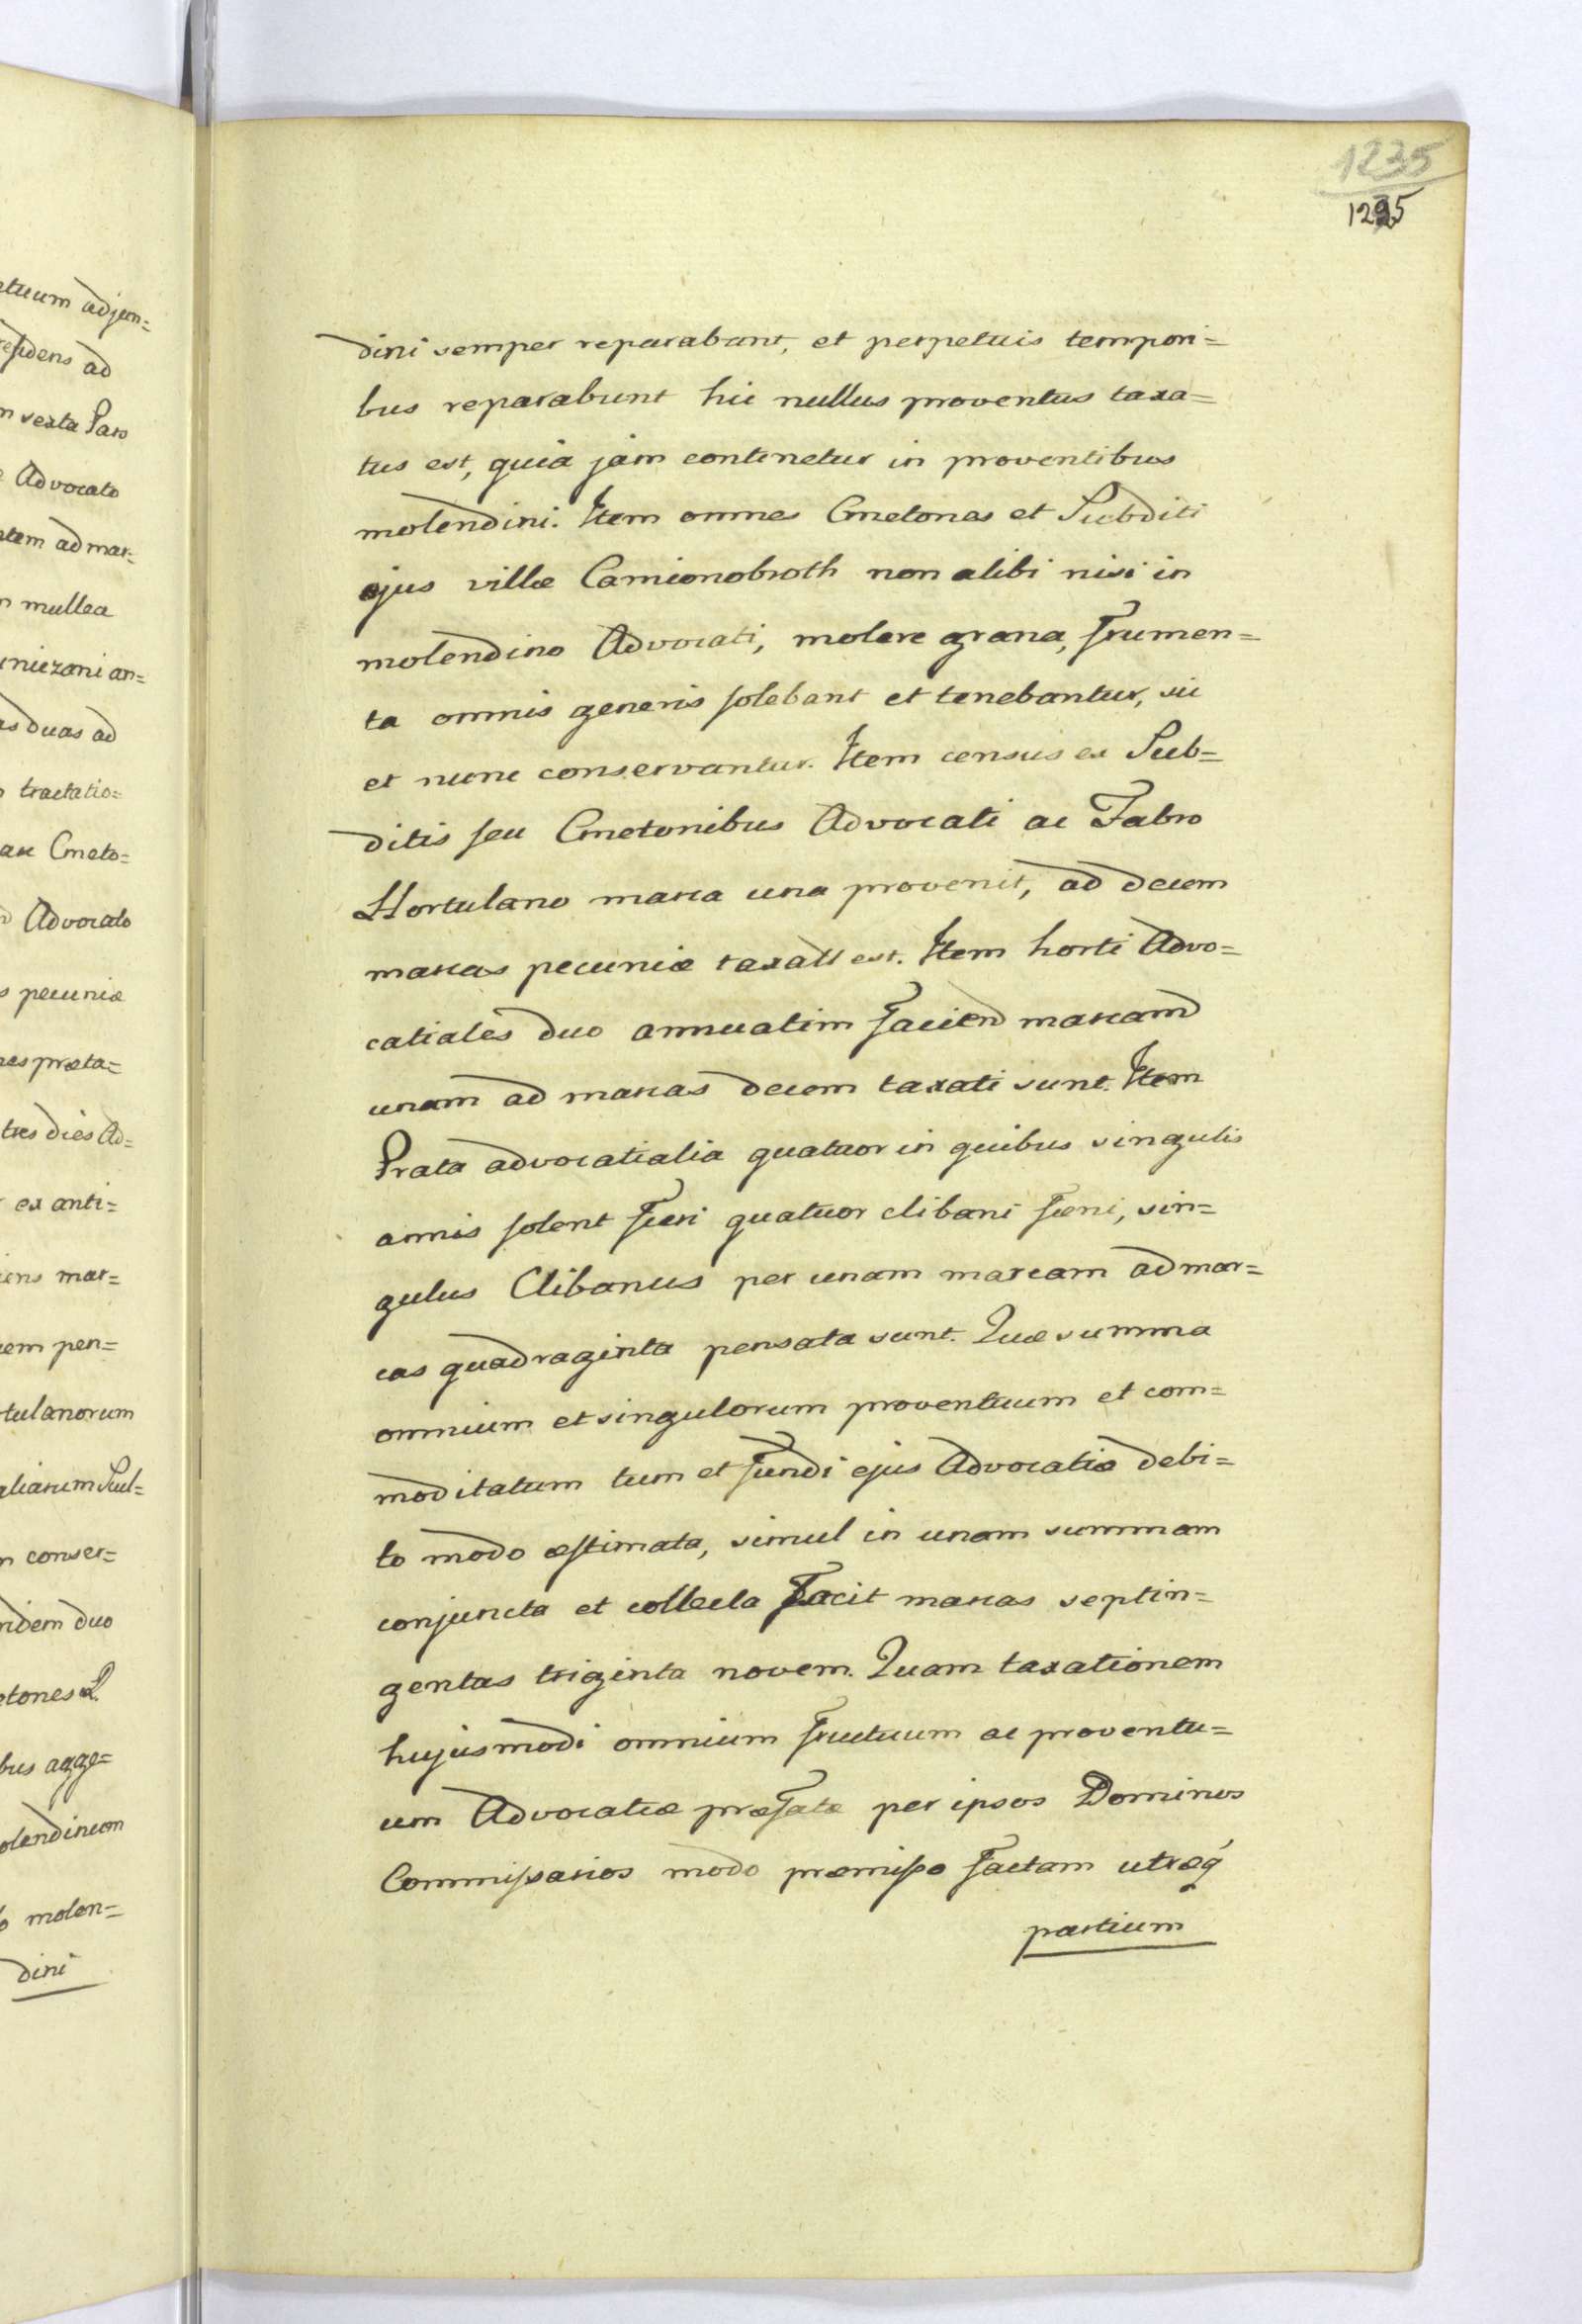 etuum adjun=
residens ad
m sexta Pars
e Advocato
ntem ad mar=
n mullea
miezani an=
as duas ad
o tractatio=
are Cmeto=
d Advocato
s pecuniæ
nes præta=
tres dies Ad=
r ex anti=
iens mar=
uem pen=
rtulanorum
aliarum Pul=
m conser=
ridem duo
etones
bus agge=
olendinum
o molen=
dini
1235
1295
dini semper reparabant, et perpetuis tempori=
bus reparabunt hic nullus proventus taxa=
tus est, quia jam continetur in proventibus
molendini. Item omnes Cmetones et Subditi
ejus villæ Camionobroth non alibi nisi in
molendino Advocati, molere grana, frumen=
ta omnis generis solebant et tenebantur, sic
et nunc conservantur. Item census ex Sub=
ditis seu Cmetonibus Advocati ac Fabro
Hortulano marca una provenit, ad decem
marcas pecuniæ taxatt est. Item horti Advo=
catiales duo annuatim faciend marcam
unam ad marcas decem taxati sunt. Item
Prata advocatialia quatuor in quibus singulis
annis solent fieri quatuor clibani fæni, sin=
gulus Clibanus per unam marcam ad mar=
cas quadraginta pensata sunt. Quæ summa
omnium et singulorum proventuum et com=
moditatum tum et fundi ejus Advocatiæ debi=
to modo æstimata, simul in unam summam
conjuncta et collecta facit marcas septin=
gentas triginta novem. Quam taxationem
hujusmodi omnium fructuum ac proventu=
um Advocatiæ præfatæ per ipsos Dominos
Commissarios modo præmisso factam utræq́
partium